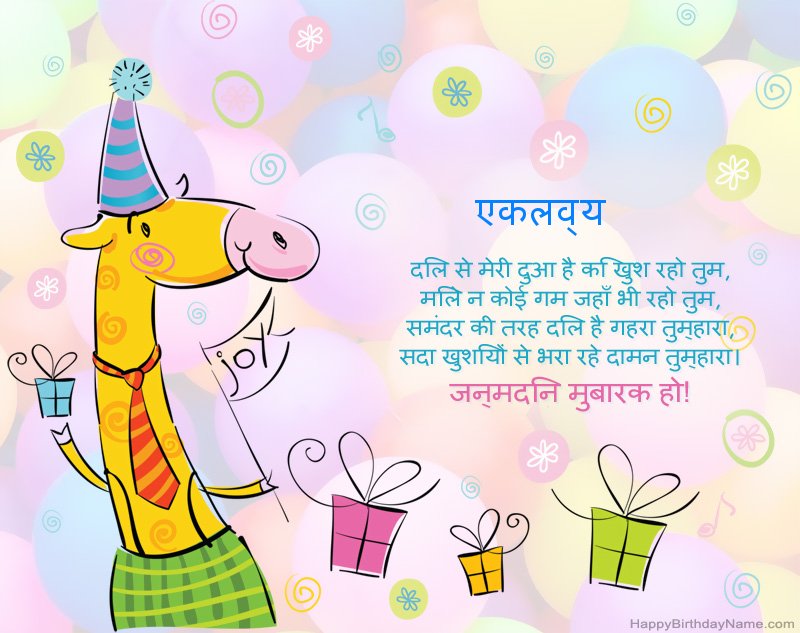 एकलव्य
दिल से मेरी दुआ है कि खुश रहो तुम,
मिले न कोई गम जहाँ भी रहो तुम,
समंदर की तरह दिल है गहरा तुम्हारा,
सदा खुशियों से भरा रहे दामन तुम्हारा।
जन्मदिन मुबारक हो!
joy
HappyBirthdayName.com